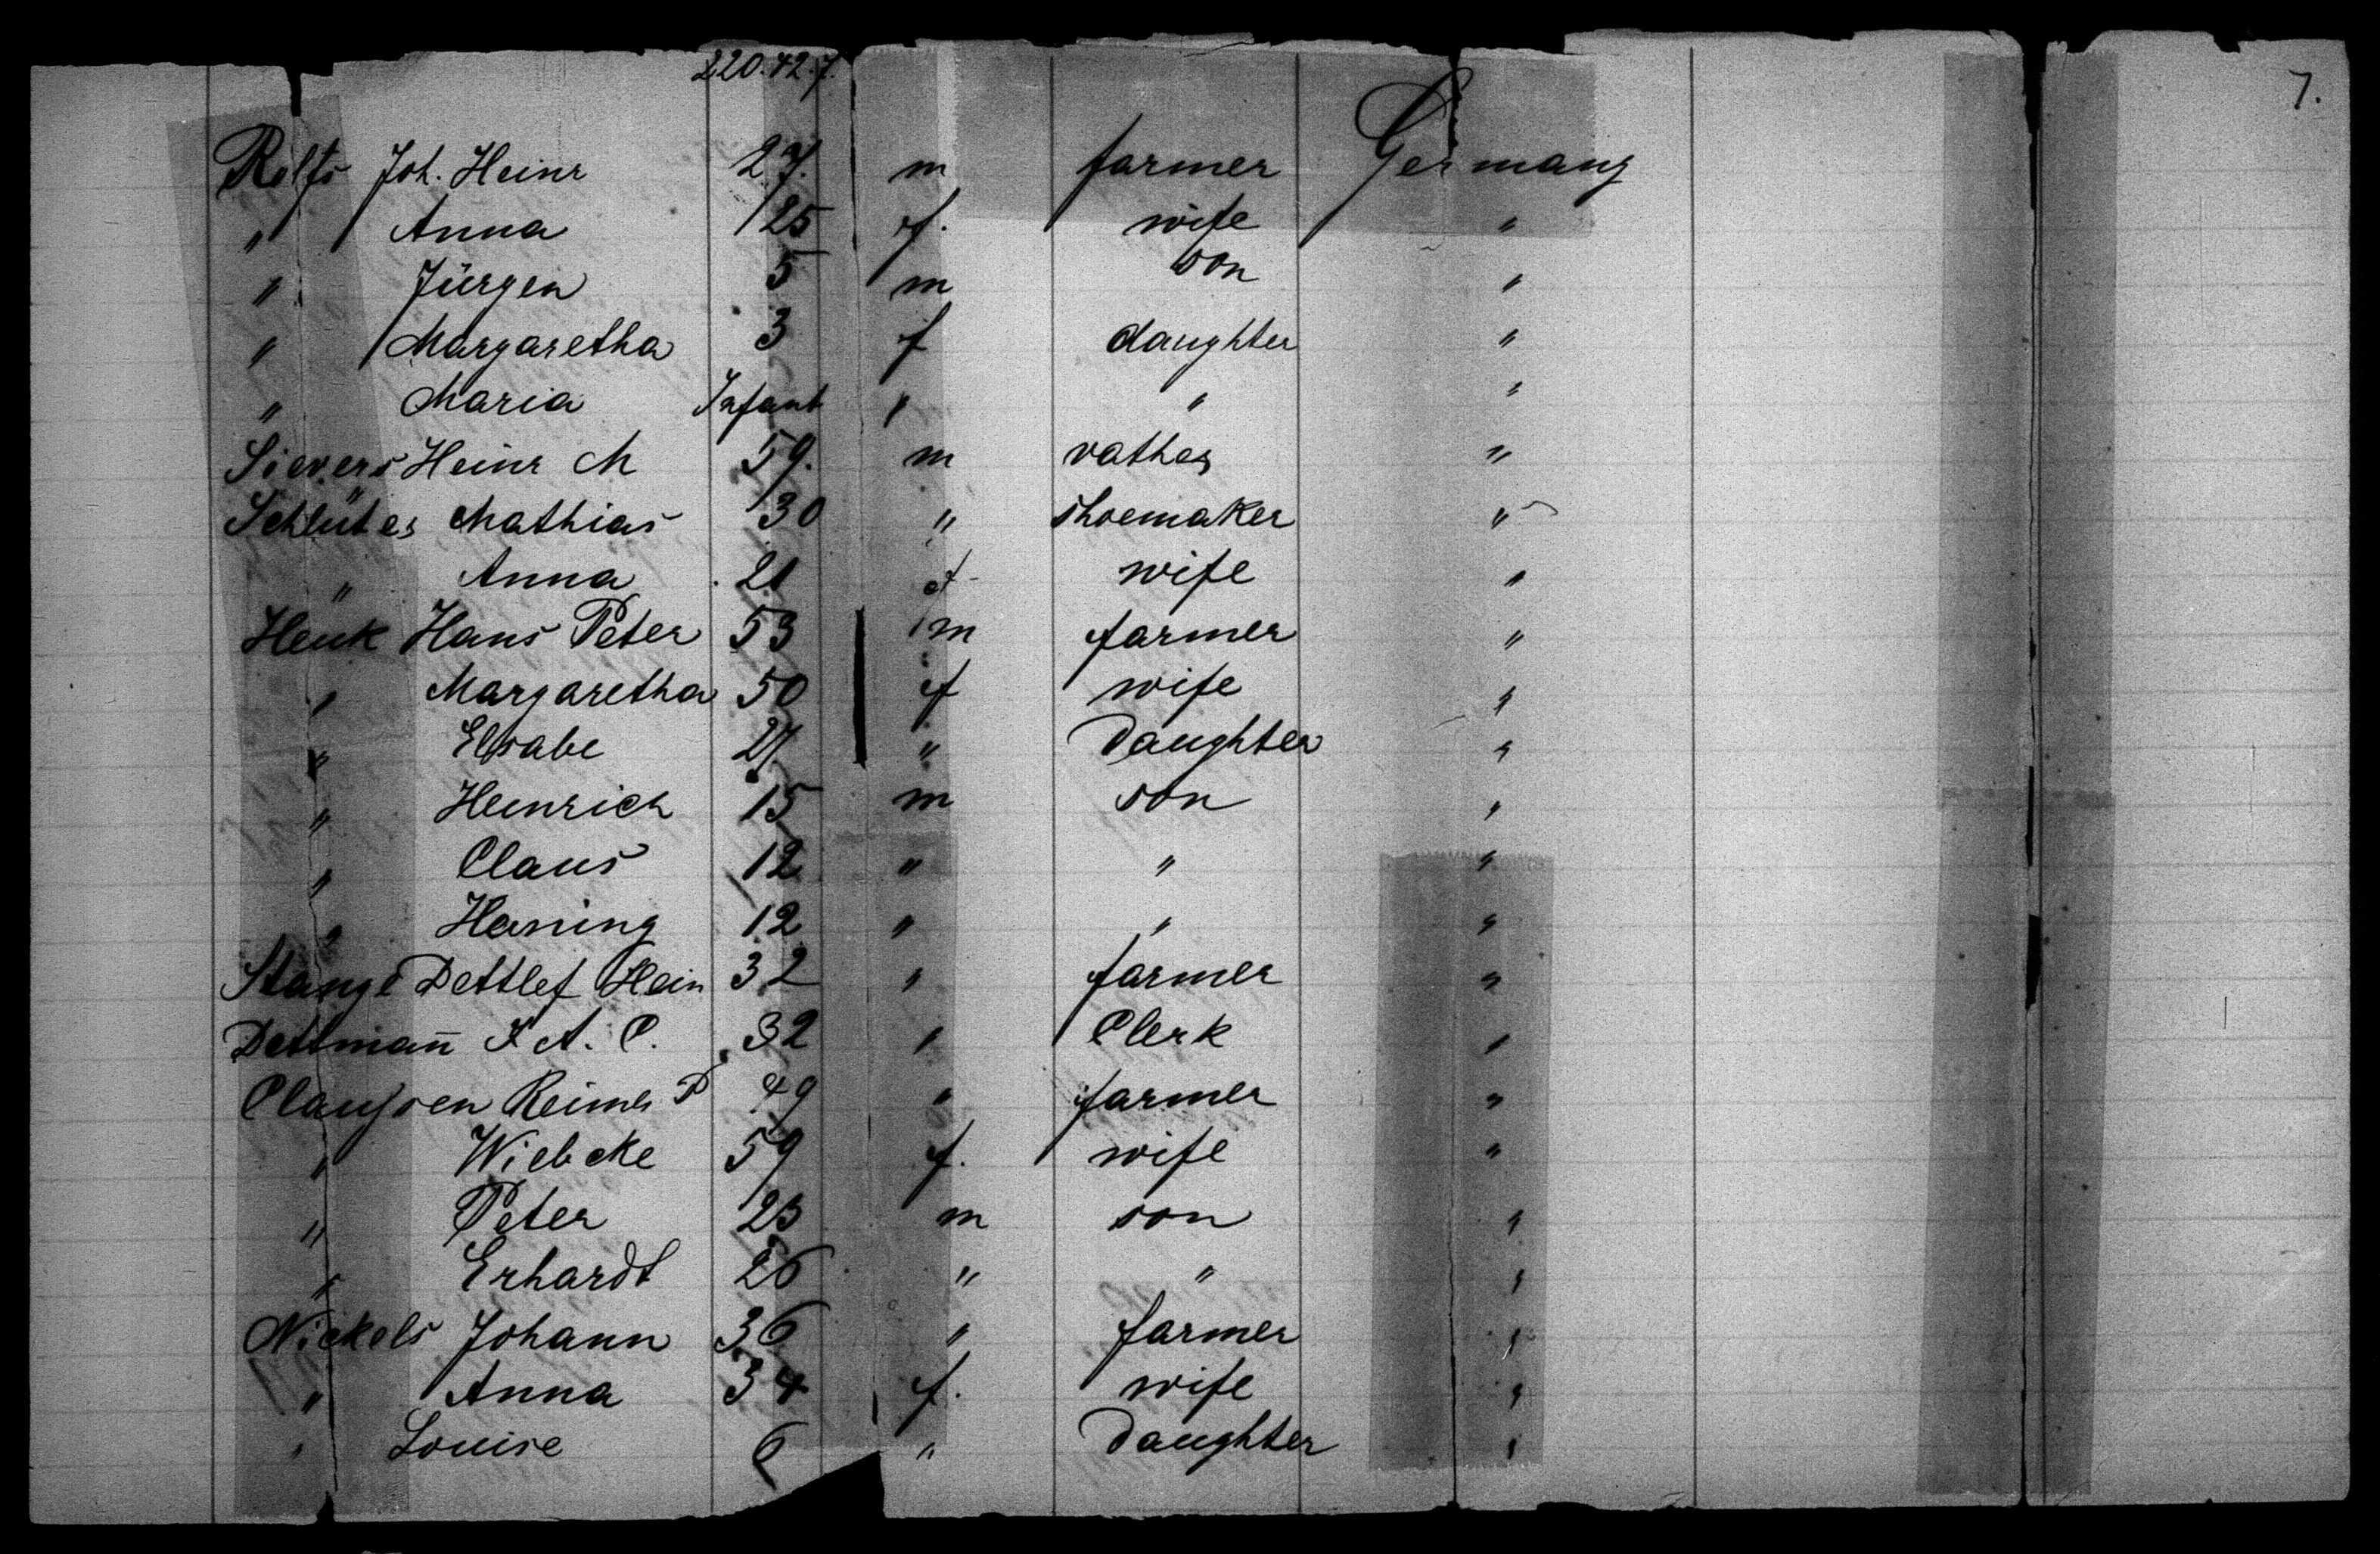 220.42.7.
7.
Rolfs Joh. Heinr 27. m farmer Germany
" Anna 25 f. wife "
" Jürgen 5 m son "
" Margaretha 3 f daughter "
" Maria Infant " " "
Sievers Heinr M 59. m vather "
Schlüter Mathias 30 " shoemaker "
" Anna 21 f wife "
Henk Hans Peter 53 m farmer "
" Margaretha 50 f wife "
" Elsabe 27. " Daughter "
" Heinrich 15 m son "
" Claus 12 " " "
" Haning 12 " " "
Stange Dettlef Hein 32 " farmer "
Dettman̄ A. C. 32 " Clerk "
Claußen Reimer P 49 " farmer "
" Wiebcke 59 f. wife "
" Peter 23 m son "
" Erhardt 26 " " "
Nickels Johann 36 " farmer "
" Anna 34 f. wife "
" Louise 6 " Daughter "